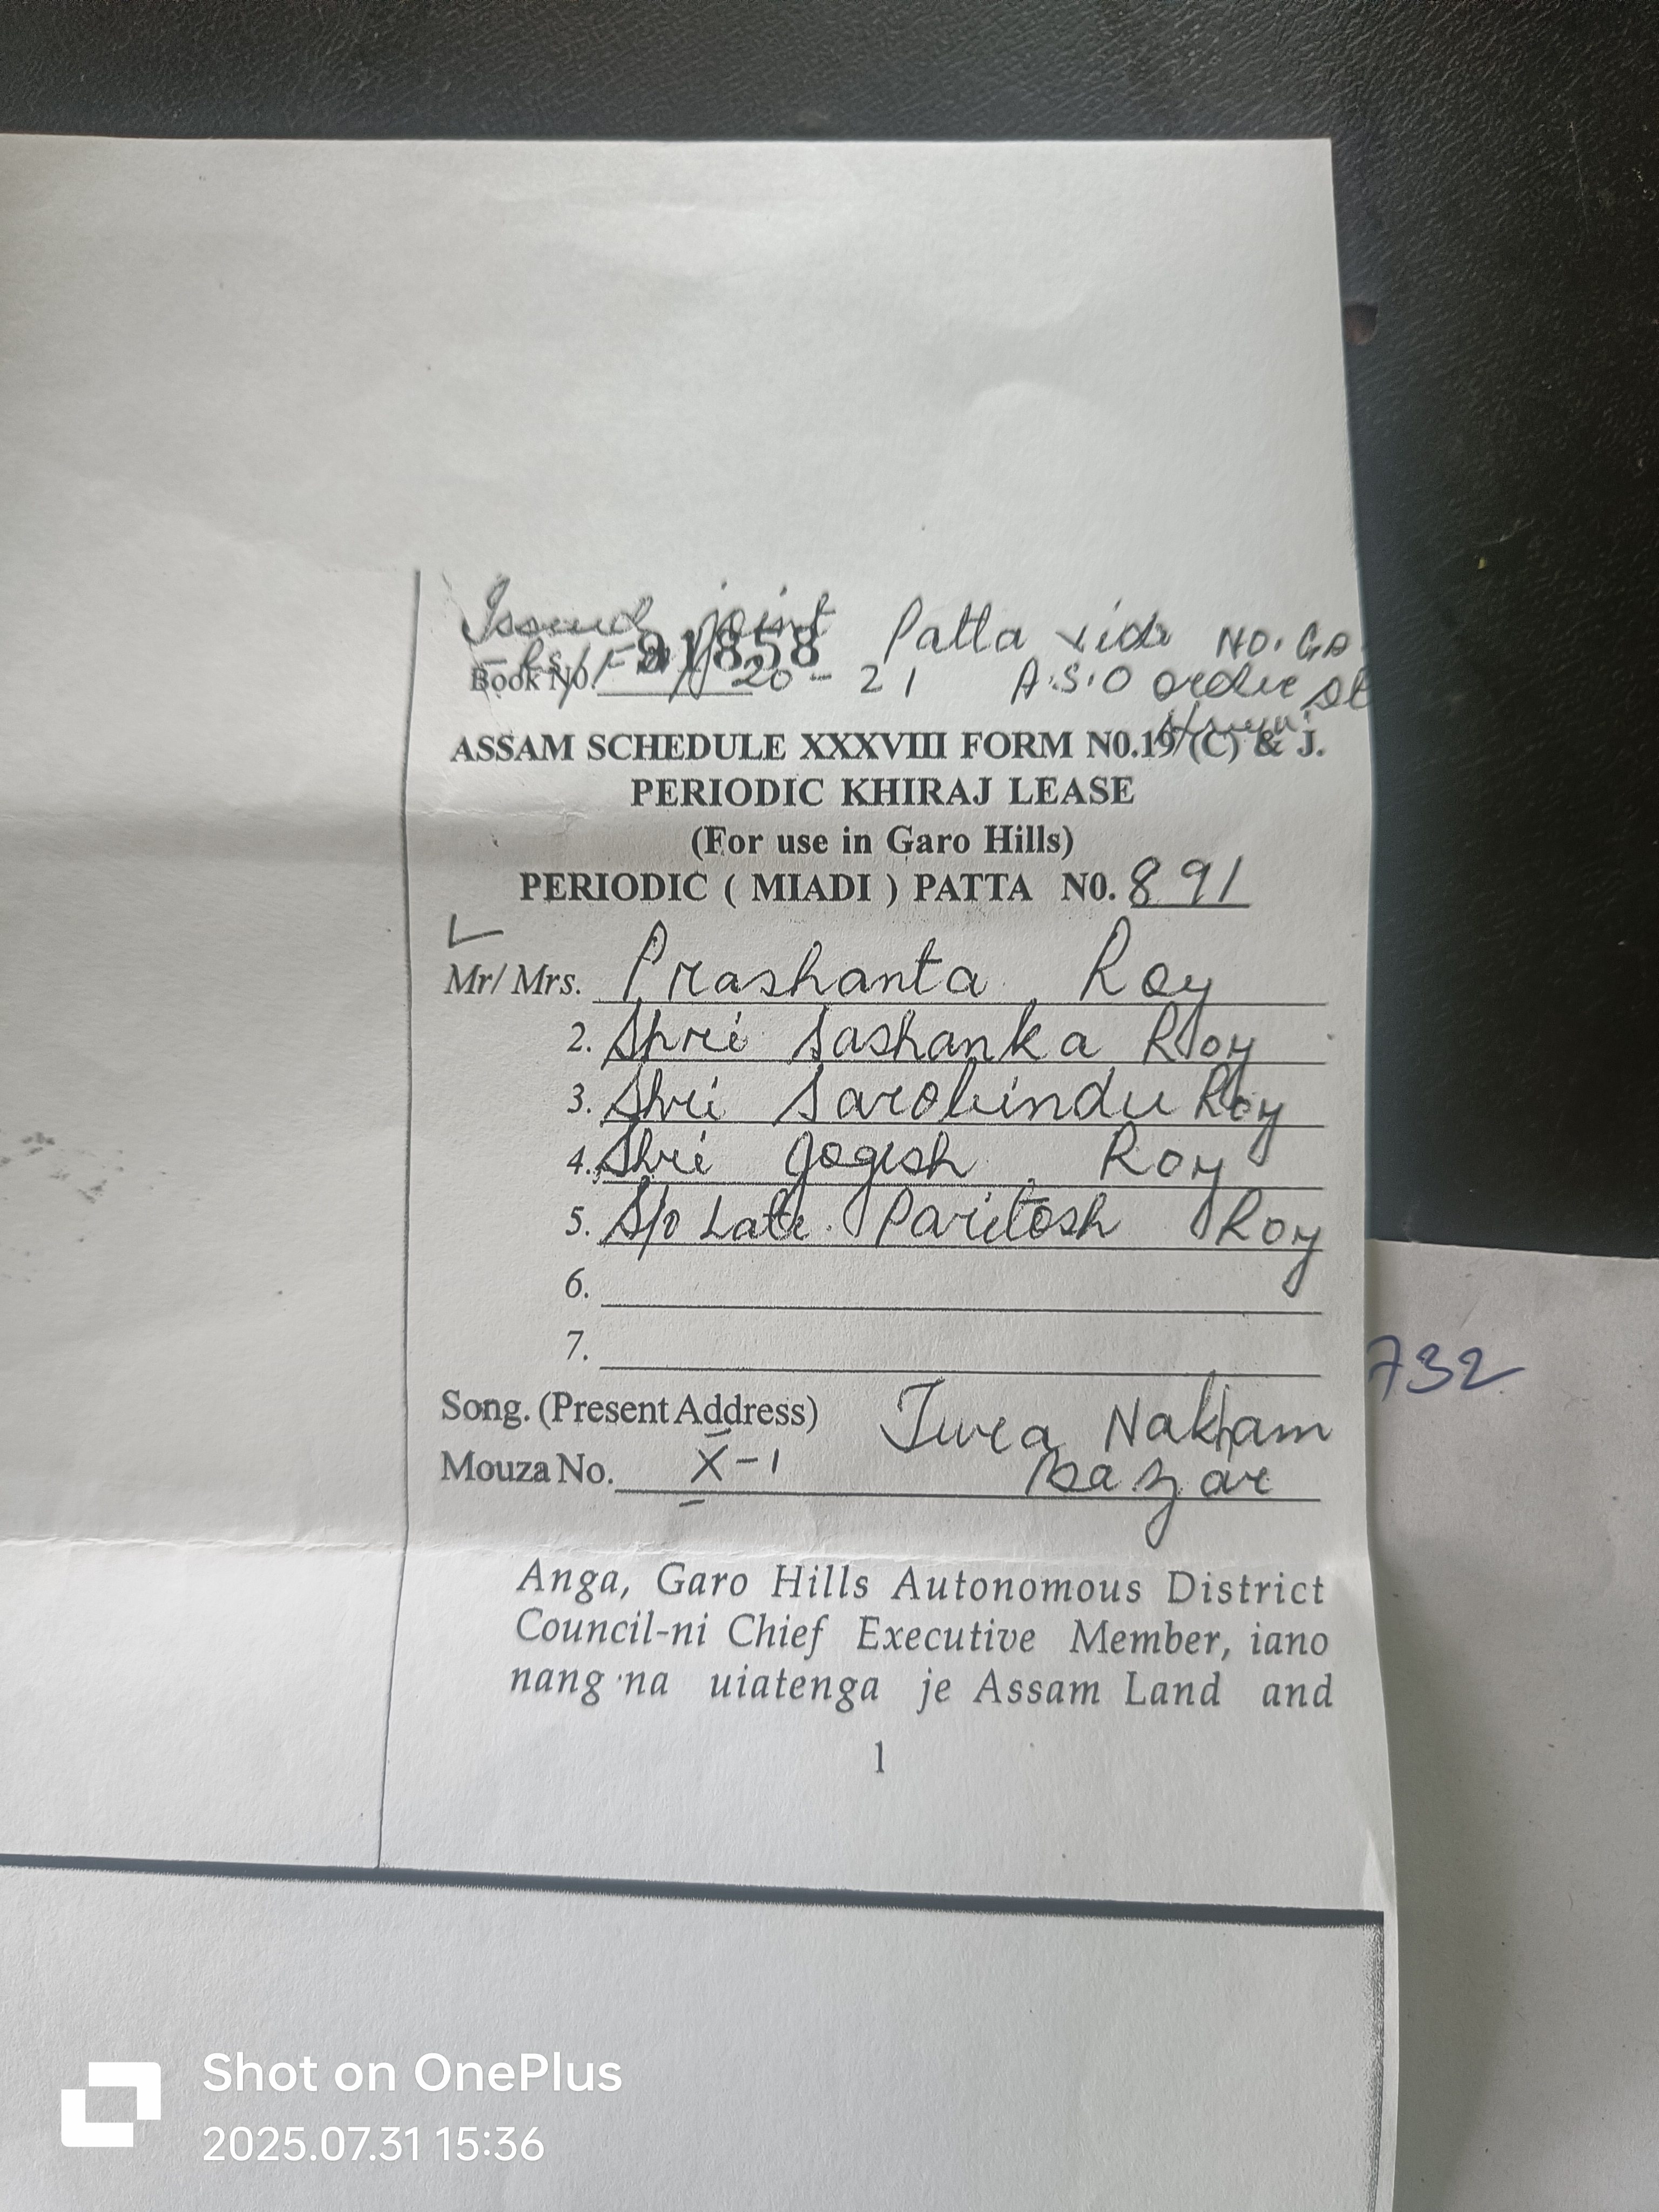 Issued joint Patta vide NO. GA
Book No. 91858 20-21 A.S.O order dt
ASSAM SCHEDULE XXXVIII FORM N0.19 (C) & J.
PERIODIC KHIRAJ LEASE
(For use in Garo Hills)
PERIODIC ( MIADI ) PATTA N0. 891
Mr/ Mrs. Prashanta Roy
2. Shri Sashanka Roy
3. Shri Sarobindu Roy
4. Shri Jogesh Roy
5. S/o Late. Paritosh Roy
6.
7.
732
Song. (Present Address) Tura Nakham
Mouza No. X-1 Bazar
Anga, Garo Hills Autonomous District
Council-ni Chief Executive Member, iano
nang·na uiatenga je Assam Land and
1
Shot on OnePlus
2025.07.31 15:36